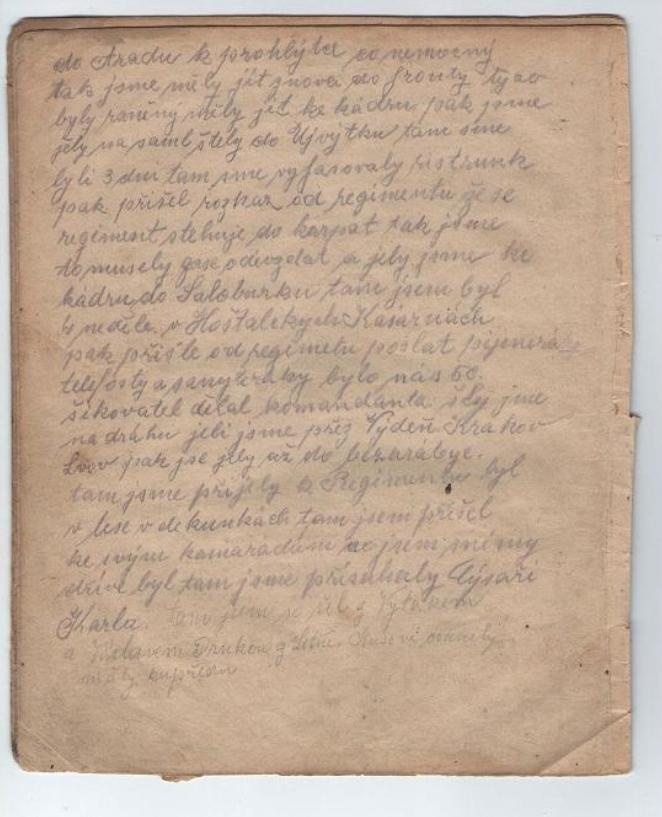 do Aradu k prohlýtce co nemocný
tak jsme měly jít znova do fronty ty co
byly raněný měly jít ke kádru pak jsme
jely na samlštely do Ujvýtku tam sme
byli 3 dni tam sme vyfasovaly ristrunk
pak přišel rozkaz od regimentu že se
regiment stehuje do karpat tak jsme
to musely zase odevzdat a jely jsme ke
kádru do Salcburku tam jsem byl
neděle v Hoštalckych Kasarnách
pak přišlo od regimetu poslat pijonerá
telefosty a sanyteráky bylo nás 60.
šikovatel dělal komandanta šly jme
na dráhu jeli jsme přes Výdeň Krakov
Lvov pak jse jely až do bezarábye.
tam jsme přijely k Regimentu byl
v lese v dekunkách tam jsem přišel
ke svým kamarádům co jsem s nimy
dříve byl tam jsme přísahaly Cýsaři
Karla. tam jsem se šel z
a z